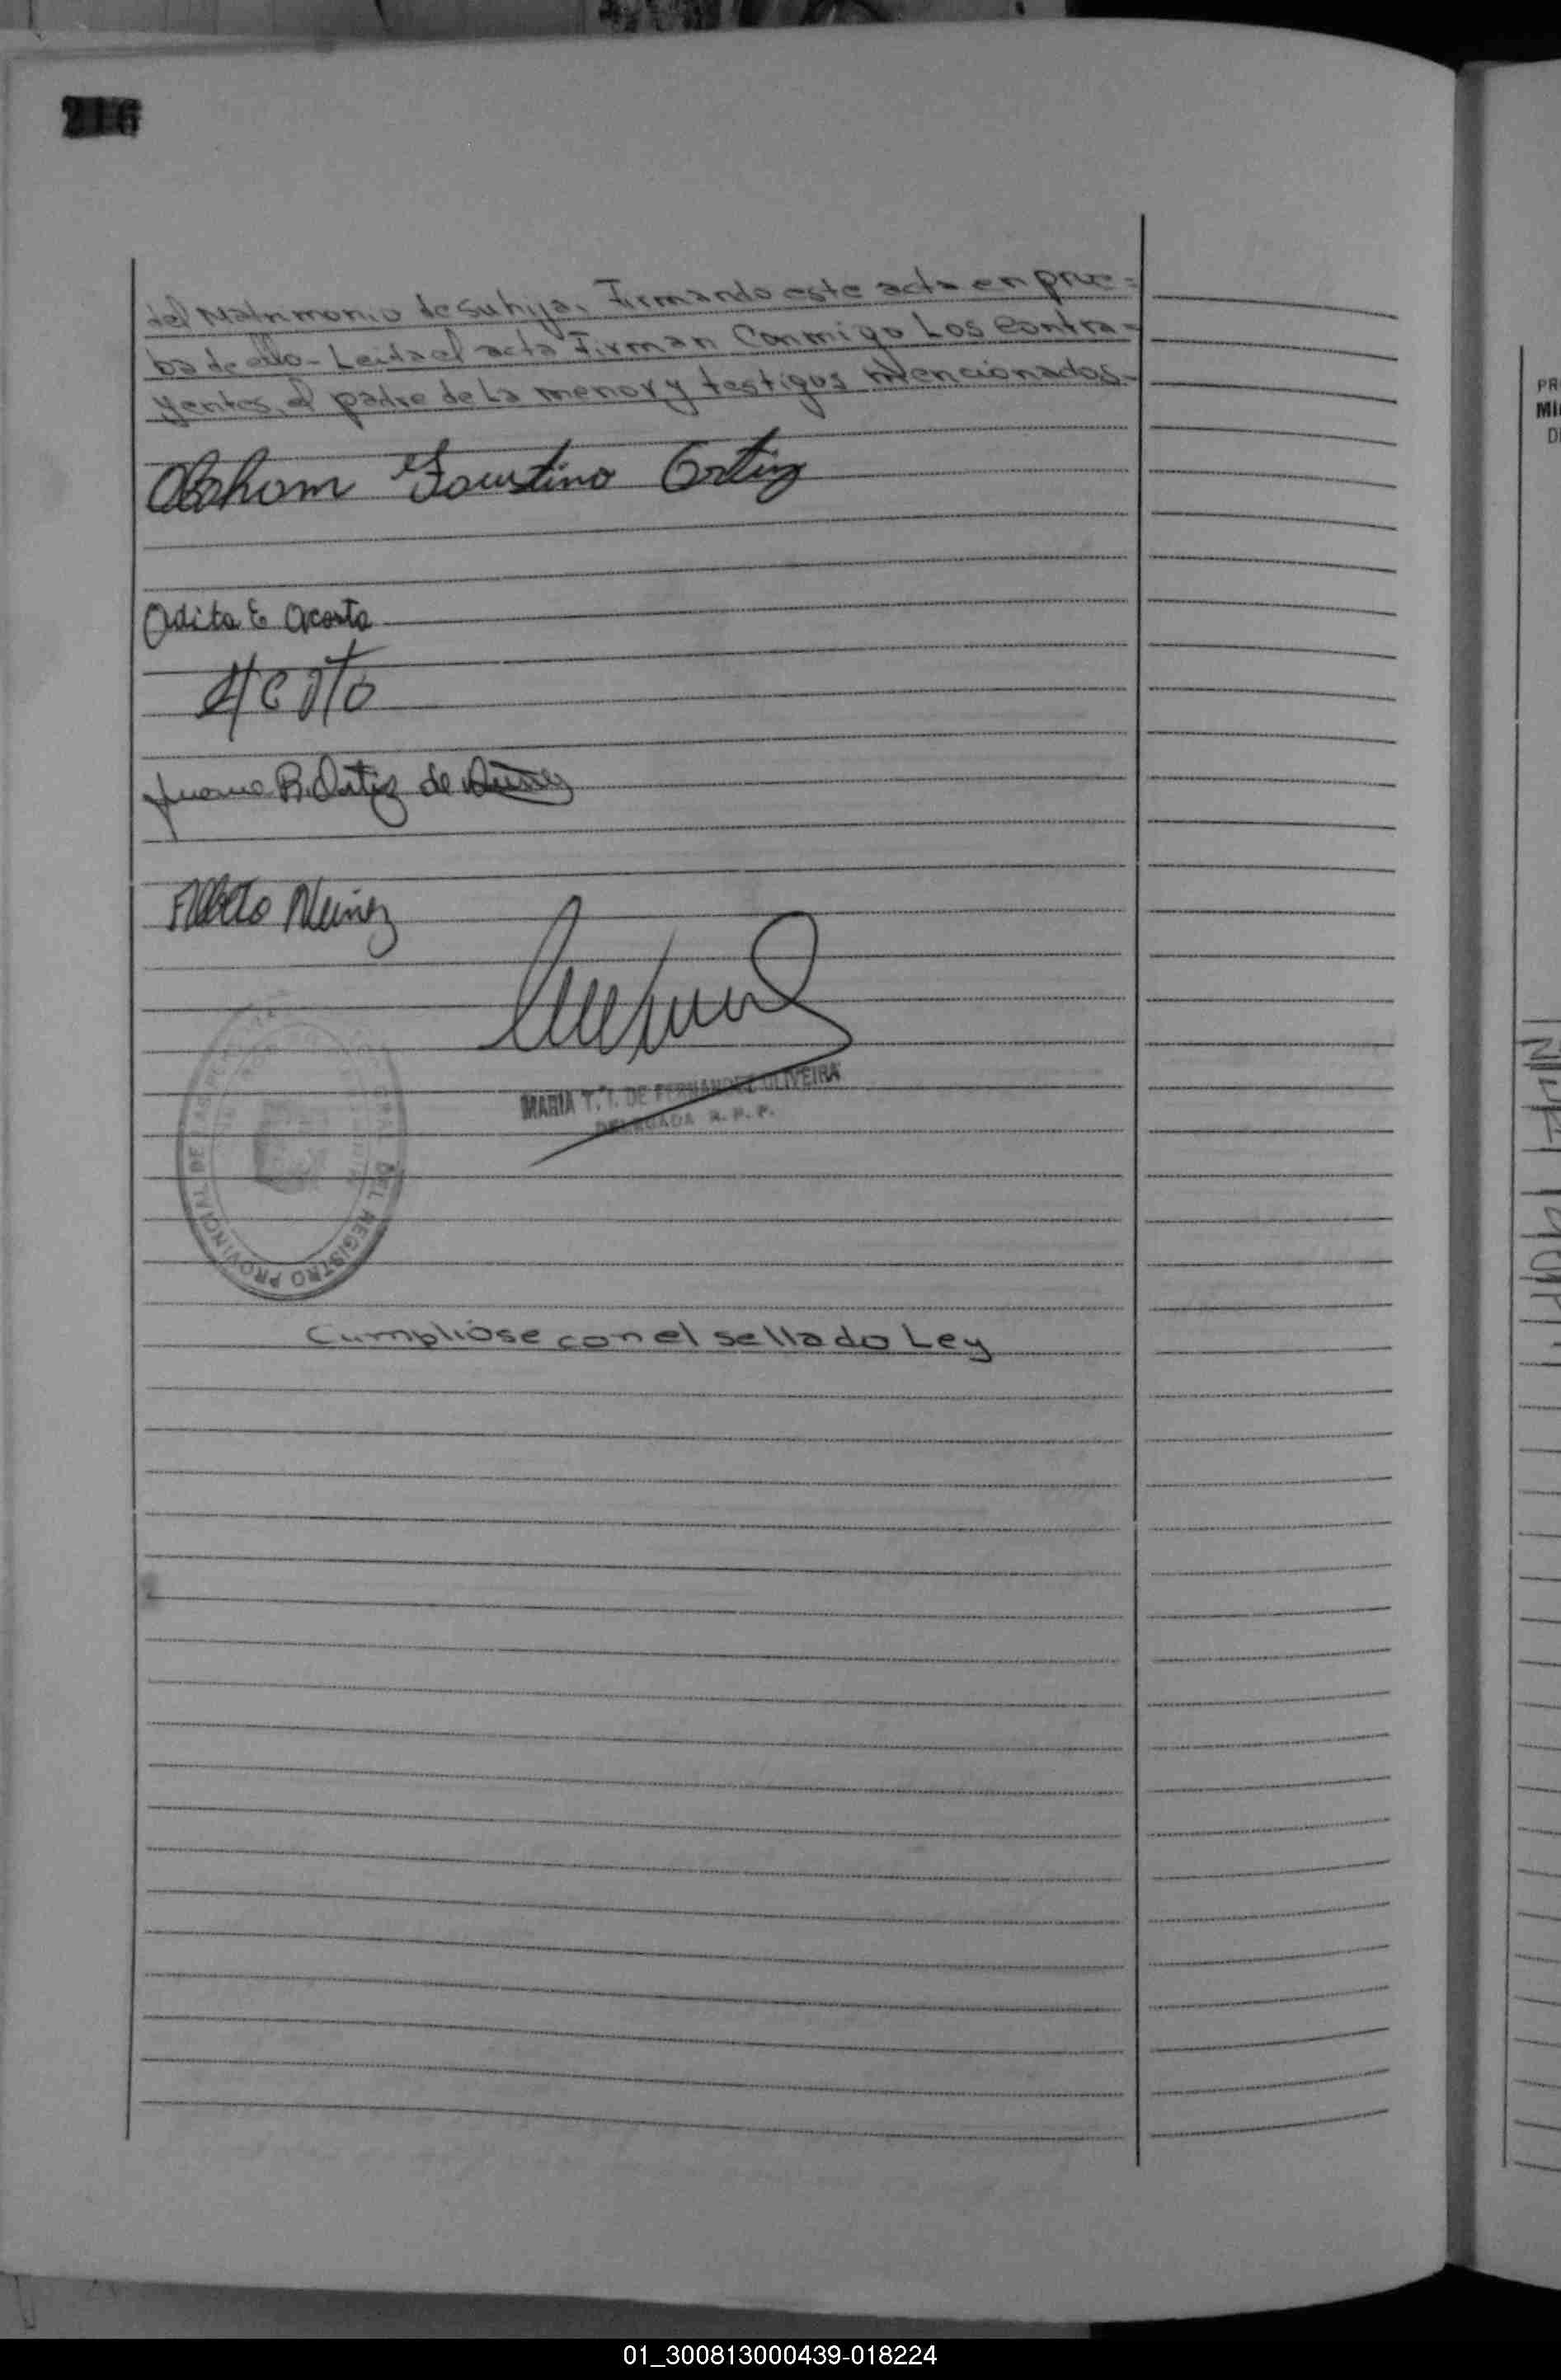 216
del Matrimonio de su hija. Firmando este acta en prue=
ba de ello - Leida el acta Firman Conmigo Los Contra=
yentes, el padre de la menor y testigos Mencionados-
Abraham Faustino Ortiz
Adita E Acosta
Juana R. Ortiz de Nuñez
Alberto Nuñez
MARIA T. I. DE FERNANDEZ OLIVEIRA
DELEGADA R. P. P.
DEL REGISTRO PROVINCIAL DE LAS
Cumplióse con el sellado Ley
PR
MI
D
01_300813000439-018224